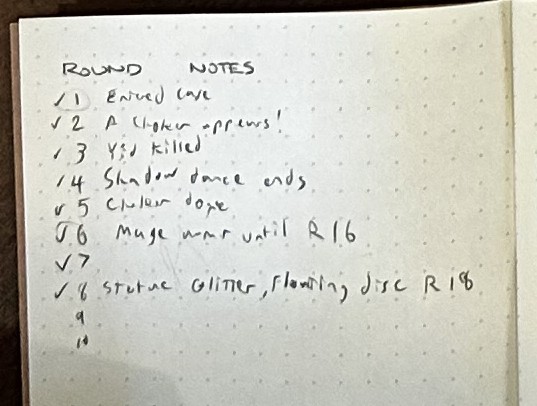 ROUND NOTES
✓ 1 Entered cave
✓ 2 A Choker appears!
✓ 3 killed
✓ 4 Shadow dance ends
✓ 5 Choker
✓ 6 Mage until R 16
✓ 7
✓ 8 statue Glitter, floating disc R 18
9
10